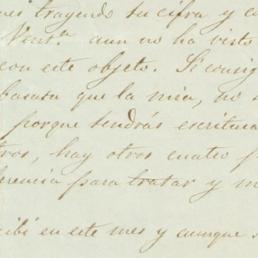 trayendo su cifra y
aun no ha visto
con este objeto. Si consig
que la mia, no s
porque tendrás escritura
tros, hay otros cuatro p
erencia para tratar y m
cibí en este mes y aunque s